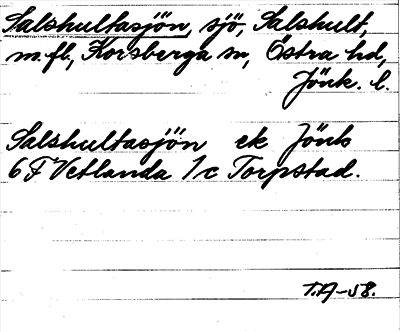 Salshultasjön, sjö, Salshult,
m.fl., Korsberga sn, Östra hd,
Jönk. l.
Salshultasjön ek Jönk
6 F Vetlanda 1 c Torpstad.
T.A-58.